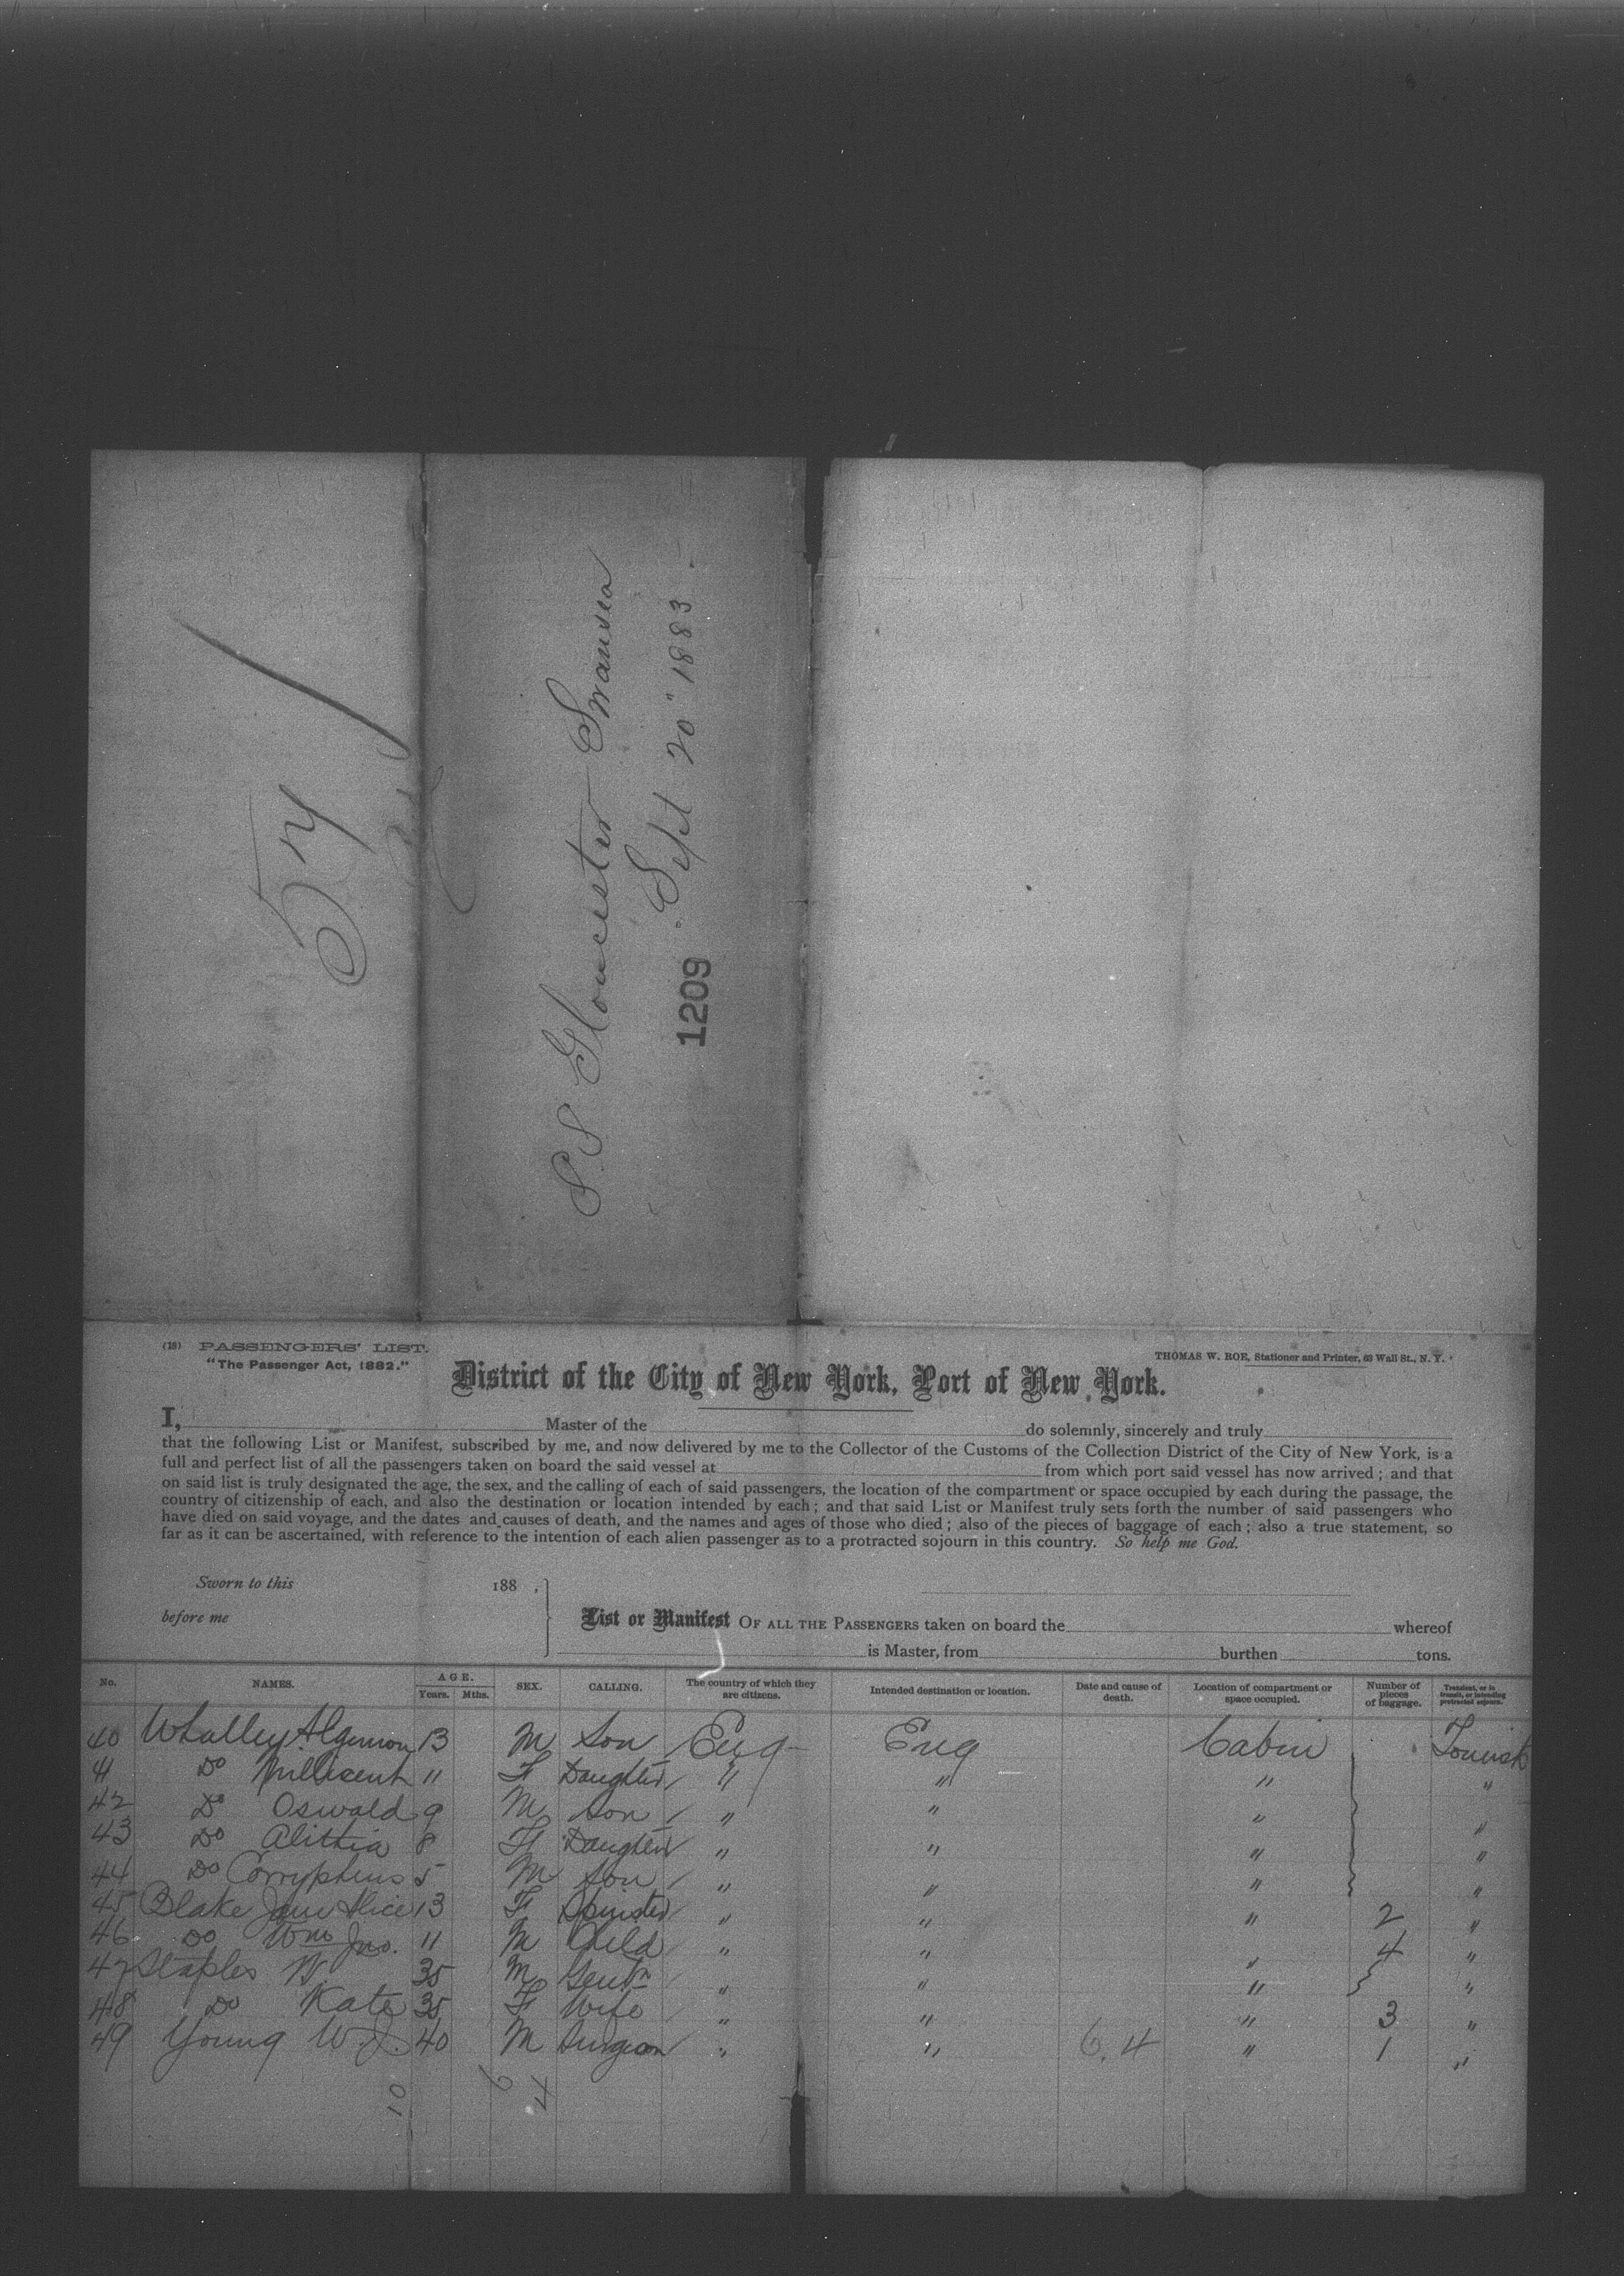 54
S.S Gloucester Swansea
Sept 20" 1883
1209
(18) PASSENGERS' LIST.
"The Passenger Act, 1882."
THOMAS W. ROE, Stationer and Printer, 63 Wall St., N. Y.
District of the City of New York, Port of New York.
I, Master of the do solemnly, sincerely and truly
that the following List or Manifest, subscribed by me, and now delivered by me to the Collector of the Customs of the Collection District of the City of New York, is a
full and perfect list of all the passengers taken on board the said vessel at from which port said vessel has now arrived; and that
on said list is truly designated the age, the sex, and the calling of each of said passengers, the location of the compartment or space occupied by each during the passage, the
country of citizenship of each, and also the destination or location intended by each; and that said List or Manifest truly sets forth the number of said passengers who
have died on said voyage, and the dates and causes of death, and the names and ages of those who died; also of the pieces of baggage of each; also a true statement, so
far as it can be ascertained, with reference to the intention of each alien passenger as to a protracted sojourn in this country. So help me God.
Sworn to this 188 .
before me
List or Manifest OF ALL THE PASSENGERS taken on board the whereof
is Master, from burthen tons.
No. NAMES. AGE. Years. Mths. SEX. CALLING. The country of which they are citizens. Intended destination or location. Date and cause of death. Location of compartment or space occupied. Number of pieces of baggage. Transient, or in transit, or intending protracted sojourn.
40 Whalley Algernon 13 M Son Eng Eng Cabin Tourist
41 Do Millicent 11 F Daughter " " " "
42 Do Oswald 9 M Son " " " "
43 Do Alithia 8 F Daughter " " " "
44 Do Corryphens 5 M Son " " " "
45 Blake Jane Alice 13 F Spinster " " " 2 "
46 Do Wm Jno. 11 M Child " " " 4 "
47 Staples W. 35 M Gentn " " " "
48 Do Kate 35 F Wife " " " 3 "
49 Young W. J. 40 M Surgeon " " 6.4 " 1 "
10 6 4